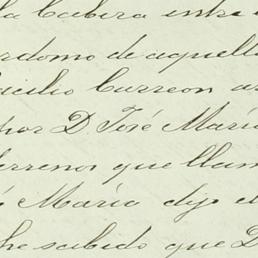 la Cabera entre
rdomo de aquella
cilio Carreon a
por D. José María
terrenos que llam
é María dijo e
he sabido que D